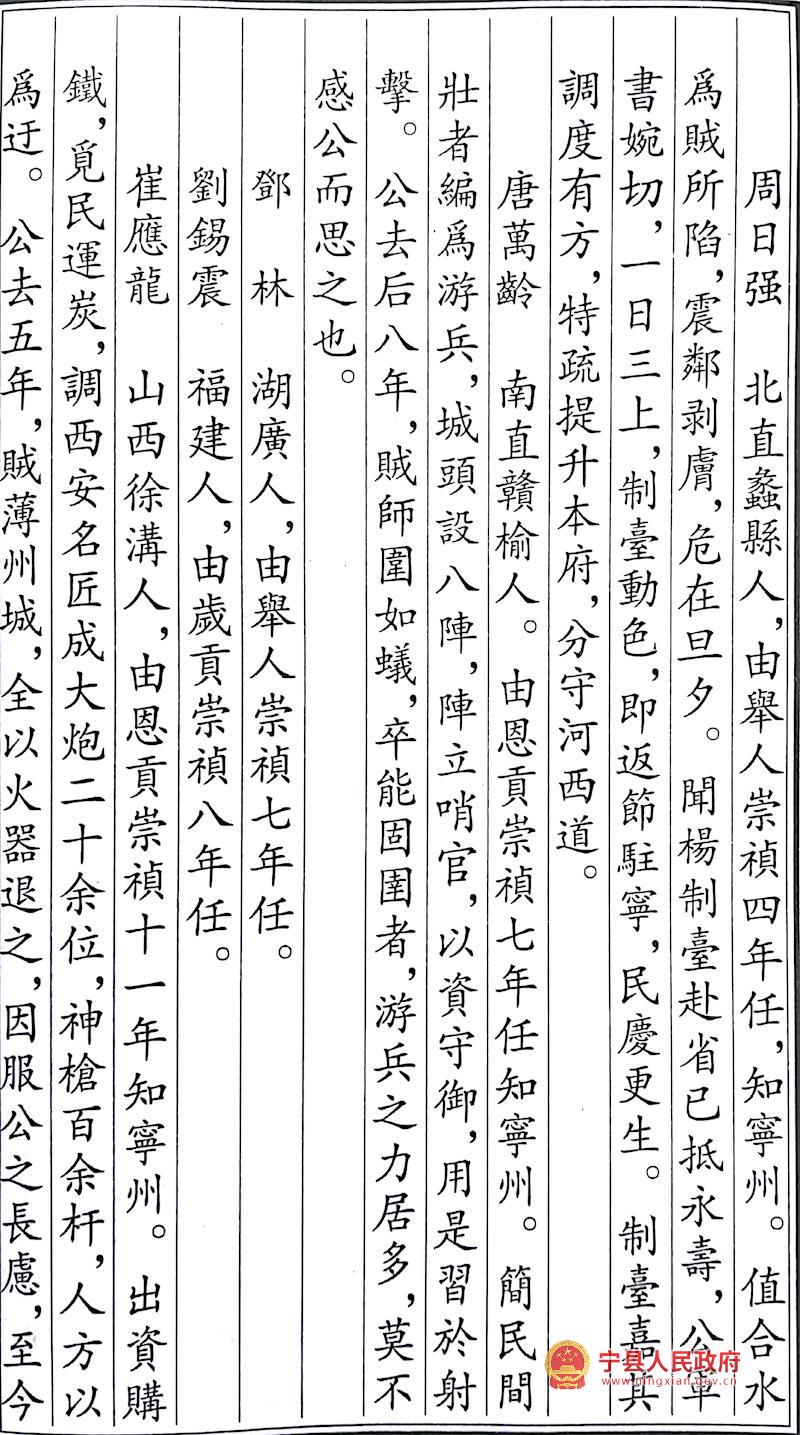 周日强　北直蠡縣人，由舉人崇禎四年任，知寧州。值合水
爲賊所陷，震鄰剥膚，危在旦夕。聞楊制臺赴省已抵永壽，公單
書婉切，一日三上，制臺動色，即返節駐寧，民慶更生。制臺嘉其
調度有方，特疏提升本府，分守河西道。
唐萬齡　南直贛榆人。由恩貢崇禎七年任知寧州。簡民間
壯者編爲游兵，城頭設八陣，陣立哨官，以資守御，用是習於射
擊。公去后八年，賊師圍如蟻，卒能固圉者，游兵之力居多，莫不
感公而思之也。
鄧　林　湖廣人，由舉人崇禎七年任。
劉錫震　福建人，由歲貢崇禎八年任。
崔應龍　山西徐溝人，由恩貢崇禎十一年知寧州。出資購
鐵，覓民運炭，調西安名匠成大炮二十余位，神槍百余杆，人方以
爲迂。公去五年，賊薄州城，全以火器退之，因服公之長慮，至今
宁县人民政府
www.ningxian.gov.cn